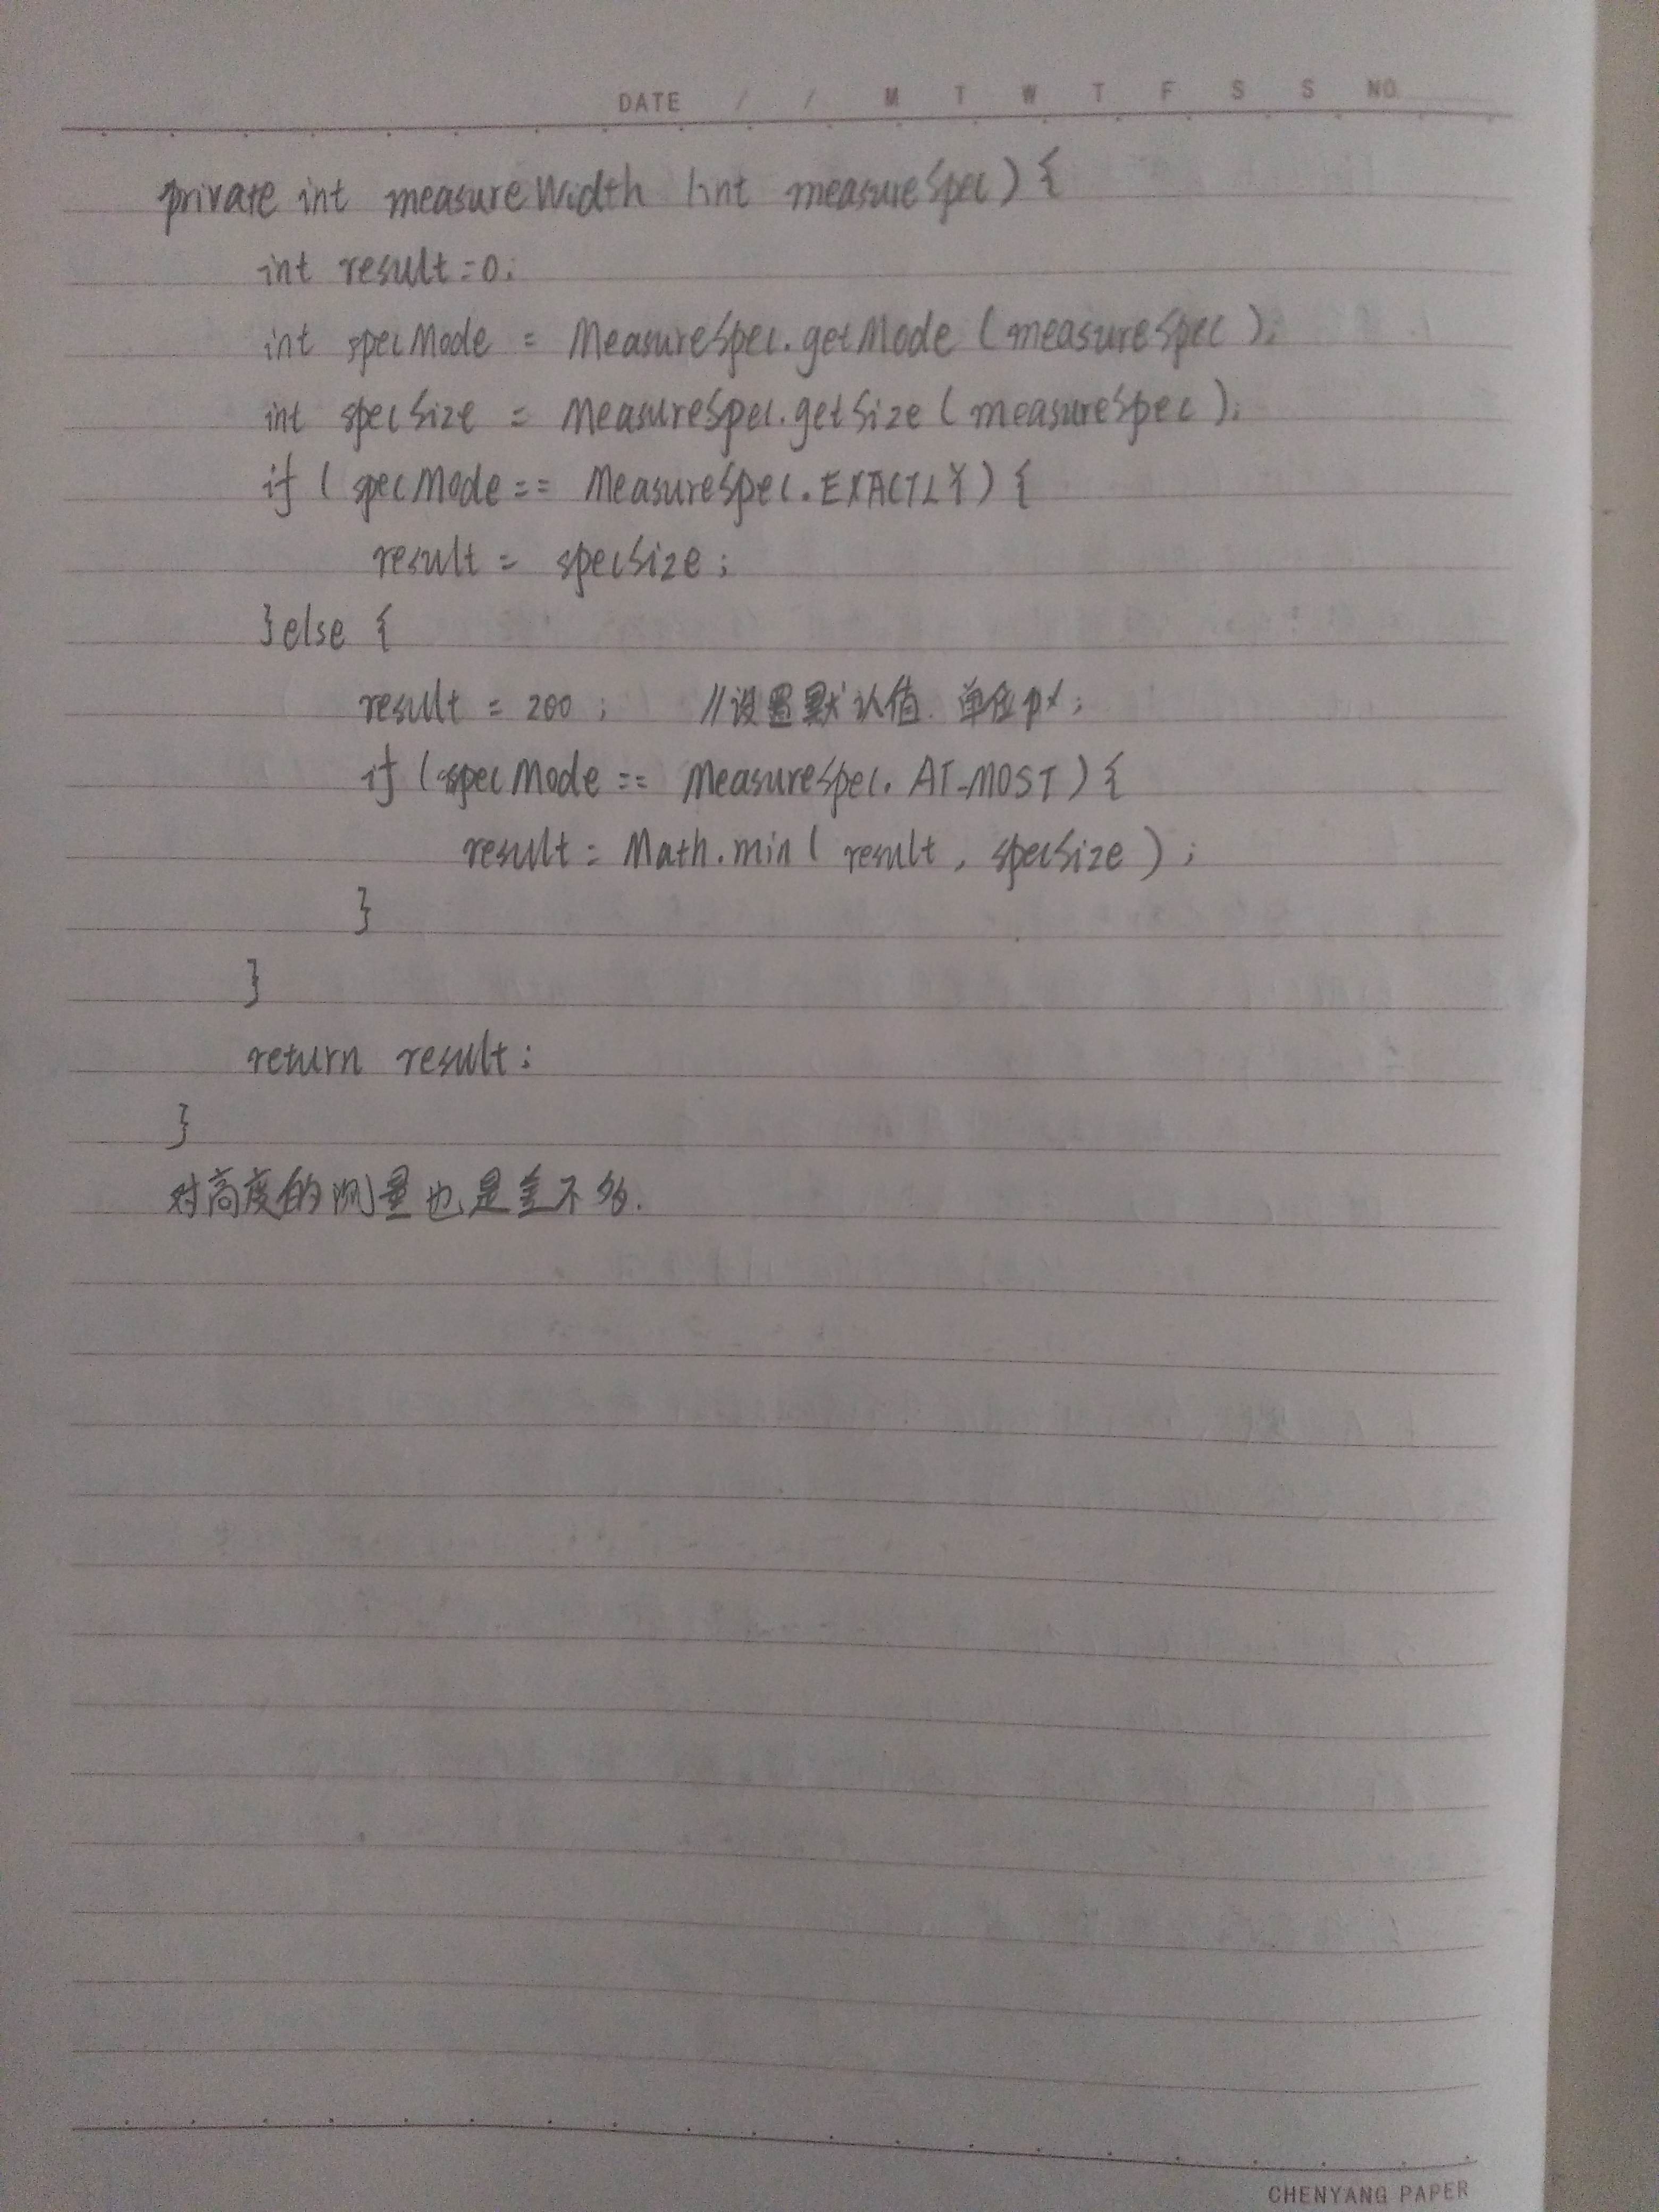 DATE / / M T W T F S S NO.
private int measureWidth (int measureSpec) {
int result=0;
int specMode = MeasureSpec.getMode (measureSpec);
int specSize = MeasureSpec.getSize (measureSpec);
if (specMode == MeasureSpec.EXACTLY) {
result = specSize;
}else {
result = 200; //设置默认值 单位px;
if (specMode == MeasureSpec.AT_MOST) {
result = Math.min( result, specSize );
}
}
return result;
}
对高度的测量也是差不多.
CHENYANG PAPER